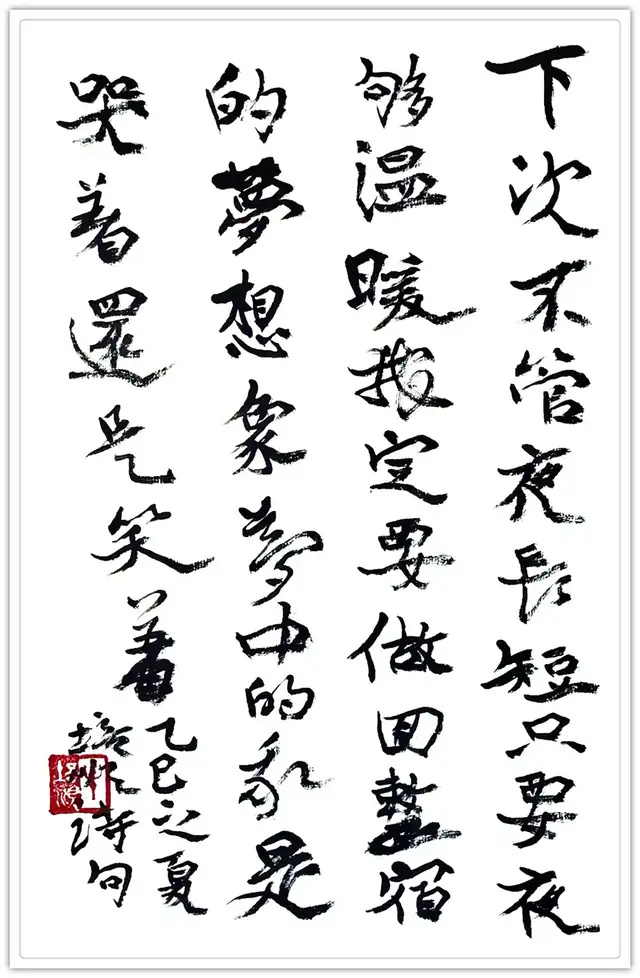 下次不管夜長短只要夜
够温暖我定要做回整宿
的夢想象夢中的我是
哭着還是笑着
乙巳之夏
培诗句